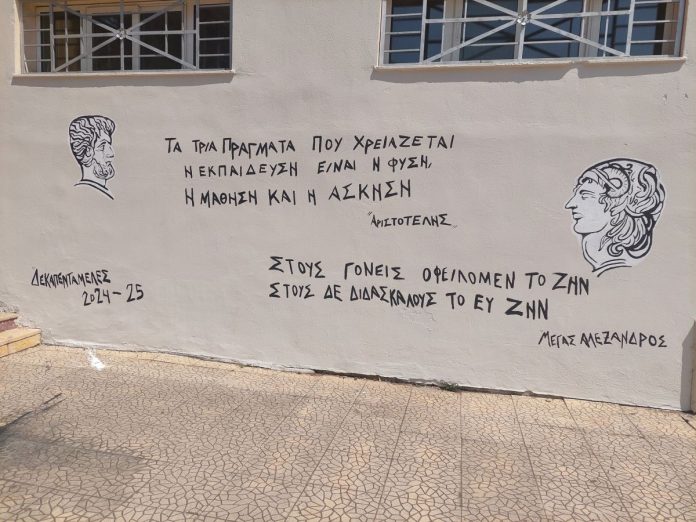 ΤΑ ΤΡΙΑ ΠΡΑΓΜΑΤΑ ΠΟΥ ΧΡΕΙΑΖΕΤΑΙ
Η ΕΚΠΑΙΔΕΥΣΗ ΕΙΝΑΙ Η ΦΥΣΗ,
Η ΜΑΘΗΣΗ ΚΑΙ Η ΑΣΚΗΣΗ
ΑΡΙΣΤΟΤΕΛΗΣ
ΣΤΟΥΣ ΓΟΝΕΙΣ ΟΦΕΙΛΟΜΕΝ ΤΟ ΖΗΝ
ΣΤΟΥΣ ΔΕ ΔΙΔΑΣΚΑΛΟΥΣ ΤΟ ΕΥ ΖΗΝ
ΜΕΓΑΣ ΑΛΕΞΑΝΔΡΟΣ
ΔΕΚΑΠΕΝΤΑΜΕΛΕΣ
2024-25